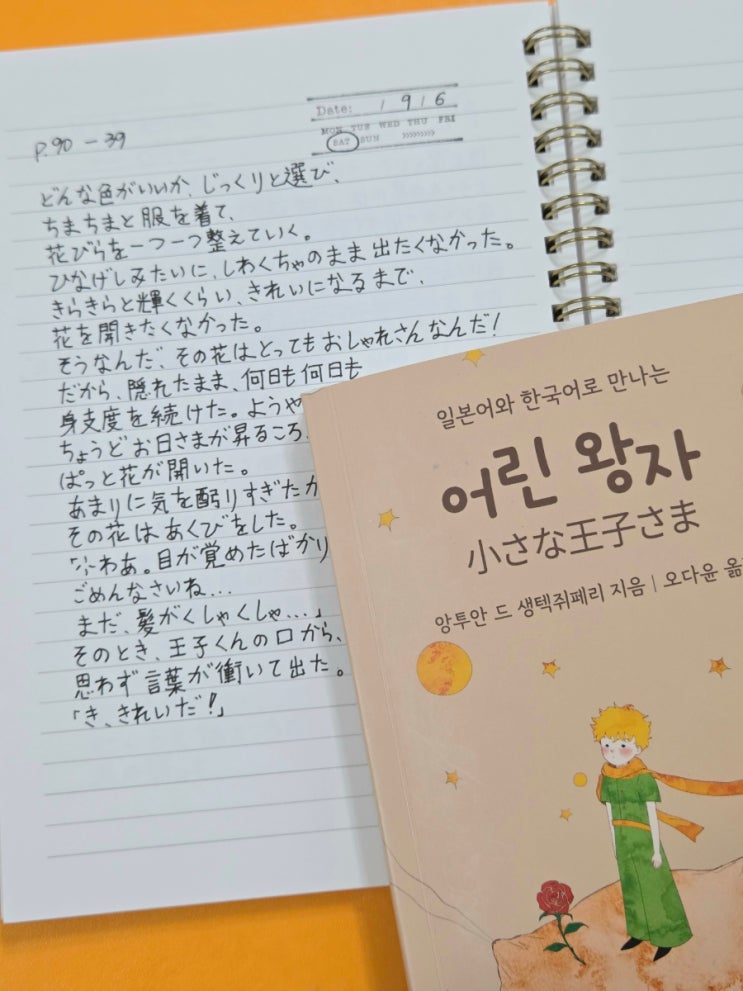 P.90 - 39
Date: / 9 / 6
MON TUE WED THU FRI
SAT SUN
どんな色がいいか、じっくりと選び、
ちまちまと服を着て、
花びらを一つ一つ整えていく。
ひなげしみたいに、しわくちゃのまま出たくなかった。
きらきらと輝くくらい、きれいになるまで、
花を開きたくなかった。
そうなんだ、その花はとってもおしゃれさんなんだ!
だから、隠れたまま、何日も何日も
身支度を続けた。ようや
ちょうどお日さまが昇るころ、
ぱっと花が開いた。
あまりに気を配りすぎたか
その花はあくびをした。
「ふわあ。目が覚めたばかり
ごめんなさいね...
まだ、髪がくしゃくしゃ...」
そのとき、王子くんの口から、
思わず言葉が衝いて出た。
「き、きれいだ!」
일본어와 한국어로 만나는
어린 왕자
小さな王子さま
앙투안 드 생텍쥐페리 지음 | 오다윤 옮